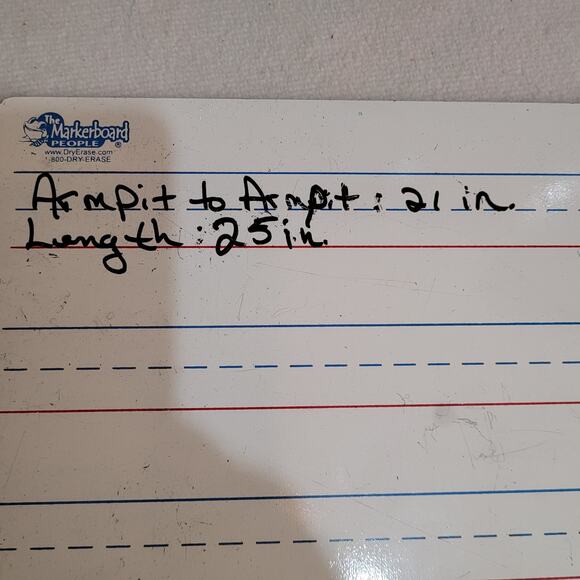 The
Markerboard
PEOPLE ®
www.DryErase.com
1-800-DRY-ERASE
Armpit to Armpit: 21 in.
Length: 25 in.